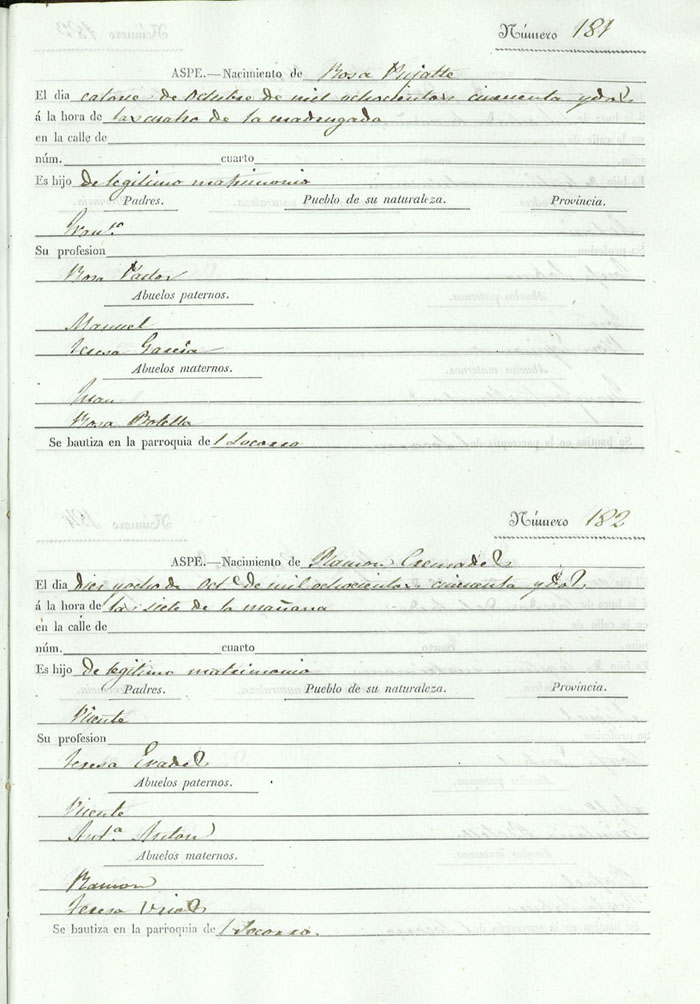 Número 181
ASPE.—Nacimiento de Rosa Pujalte
El dia catorce de Octubre de mil ochocientos cincuenta y dos
á la hora de las cuatro de la madrugada
en la calle de
núm. cuarto
Es hijo de legitimo matrimonio
Padres. Pueblo de su naturaleza. Provincia.
Franco
Su profesion
Rosa Pastor
Abuelos paternos.
Manuel
Teresa Garcia
Abuelos maternos.
Juan
Rosa Botella
Se bautiza en la parroquia del Socorro
Número 182
ASPE.—Nacimiento de Ramon Cremades
El dia diez y ocho de Oct.e de mil ochocientos cincuenta y dos
á la hora de las siete de la mañana
en la calle de
núm. cuarto
Es hijo de legitimo matrimonio
Padres. Pueblo de su naturaleza. Provincia.
Vicente
Su profesion
Teresa
Abuelos paternos.
Vicente
Ant.a Anton
Abuelos maternos.
Ramon
Teresa
Se bautiza en la parroquia del Socorro.